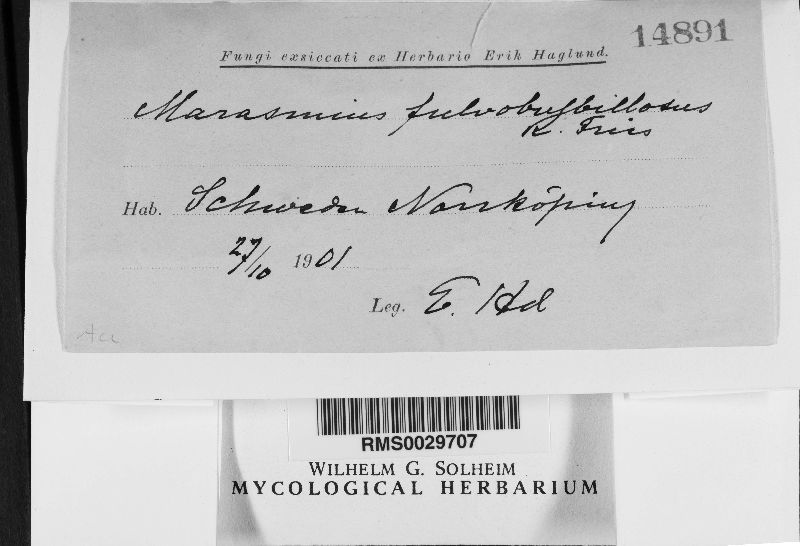 14891
Fungi exsiccati ex Herbario Erik Haglund.
Marasmius fulvobulbillosus
R. Fries
Hab. Schweden Norrköping
27/10 1901
Leg. E. Hd
RMS0029707
WILHELM G. SOLHEIM
MYCOLOGICAL HERBARIUM